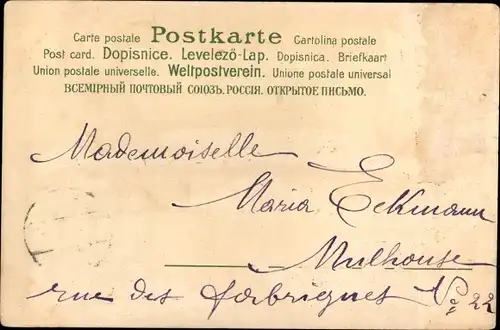 Carte postale Postkarte Cartolina postale
Post card. Dopisnice. Levelező-Lap. Dopisnica. Briefkaart
Union postale universelle. Weltpostverein. Unione postale universal
ВСЕМІРНЫЙ ПОЧТОВЫЙ СОЮЗЪ. РОССІЯ. ОТКРЫТОЕ ПИСЬМО.
Mademoiselle
Maria Eckmann
Mulhouse
rue des fabriques No 22